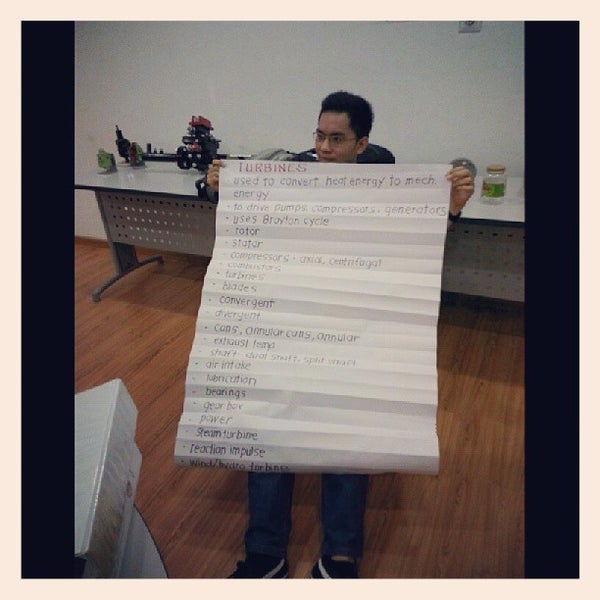 TURBINES
- used to convert heat energy to mech.
energy
- to drive pumps, compressors, generators
- uses Brayton cycle
- rotor
- stator
- compressors - axial, centrifugal
- combustors
- turbines
- blades
- convergent
- divergent
- cans, annular cans, annular
- exhaust temp
- shaft - dual shaft, split shaft
- air intake
- lubrication
- bearings
- gear box
- power
- steam turbine
- reaction impulse
- wind/hydro turbines